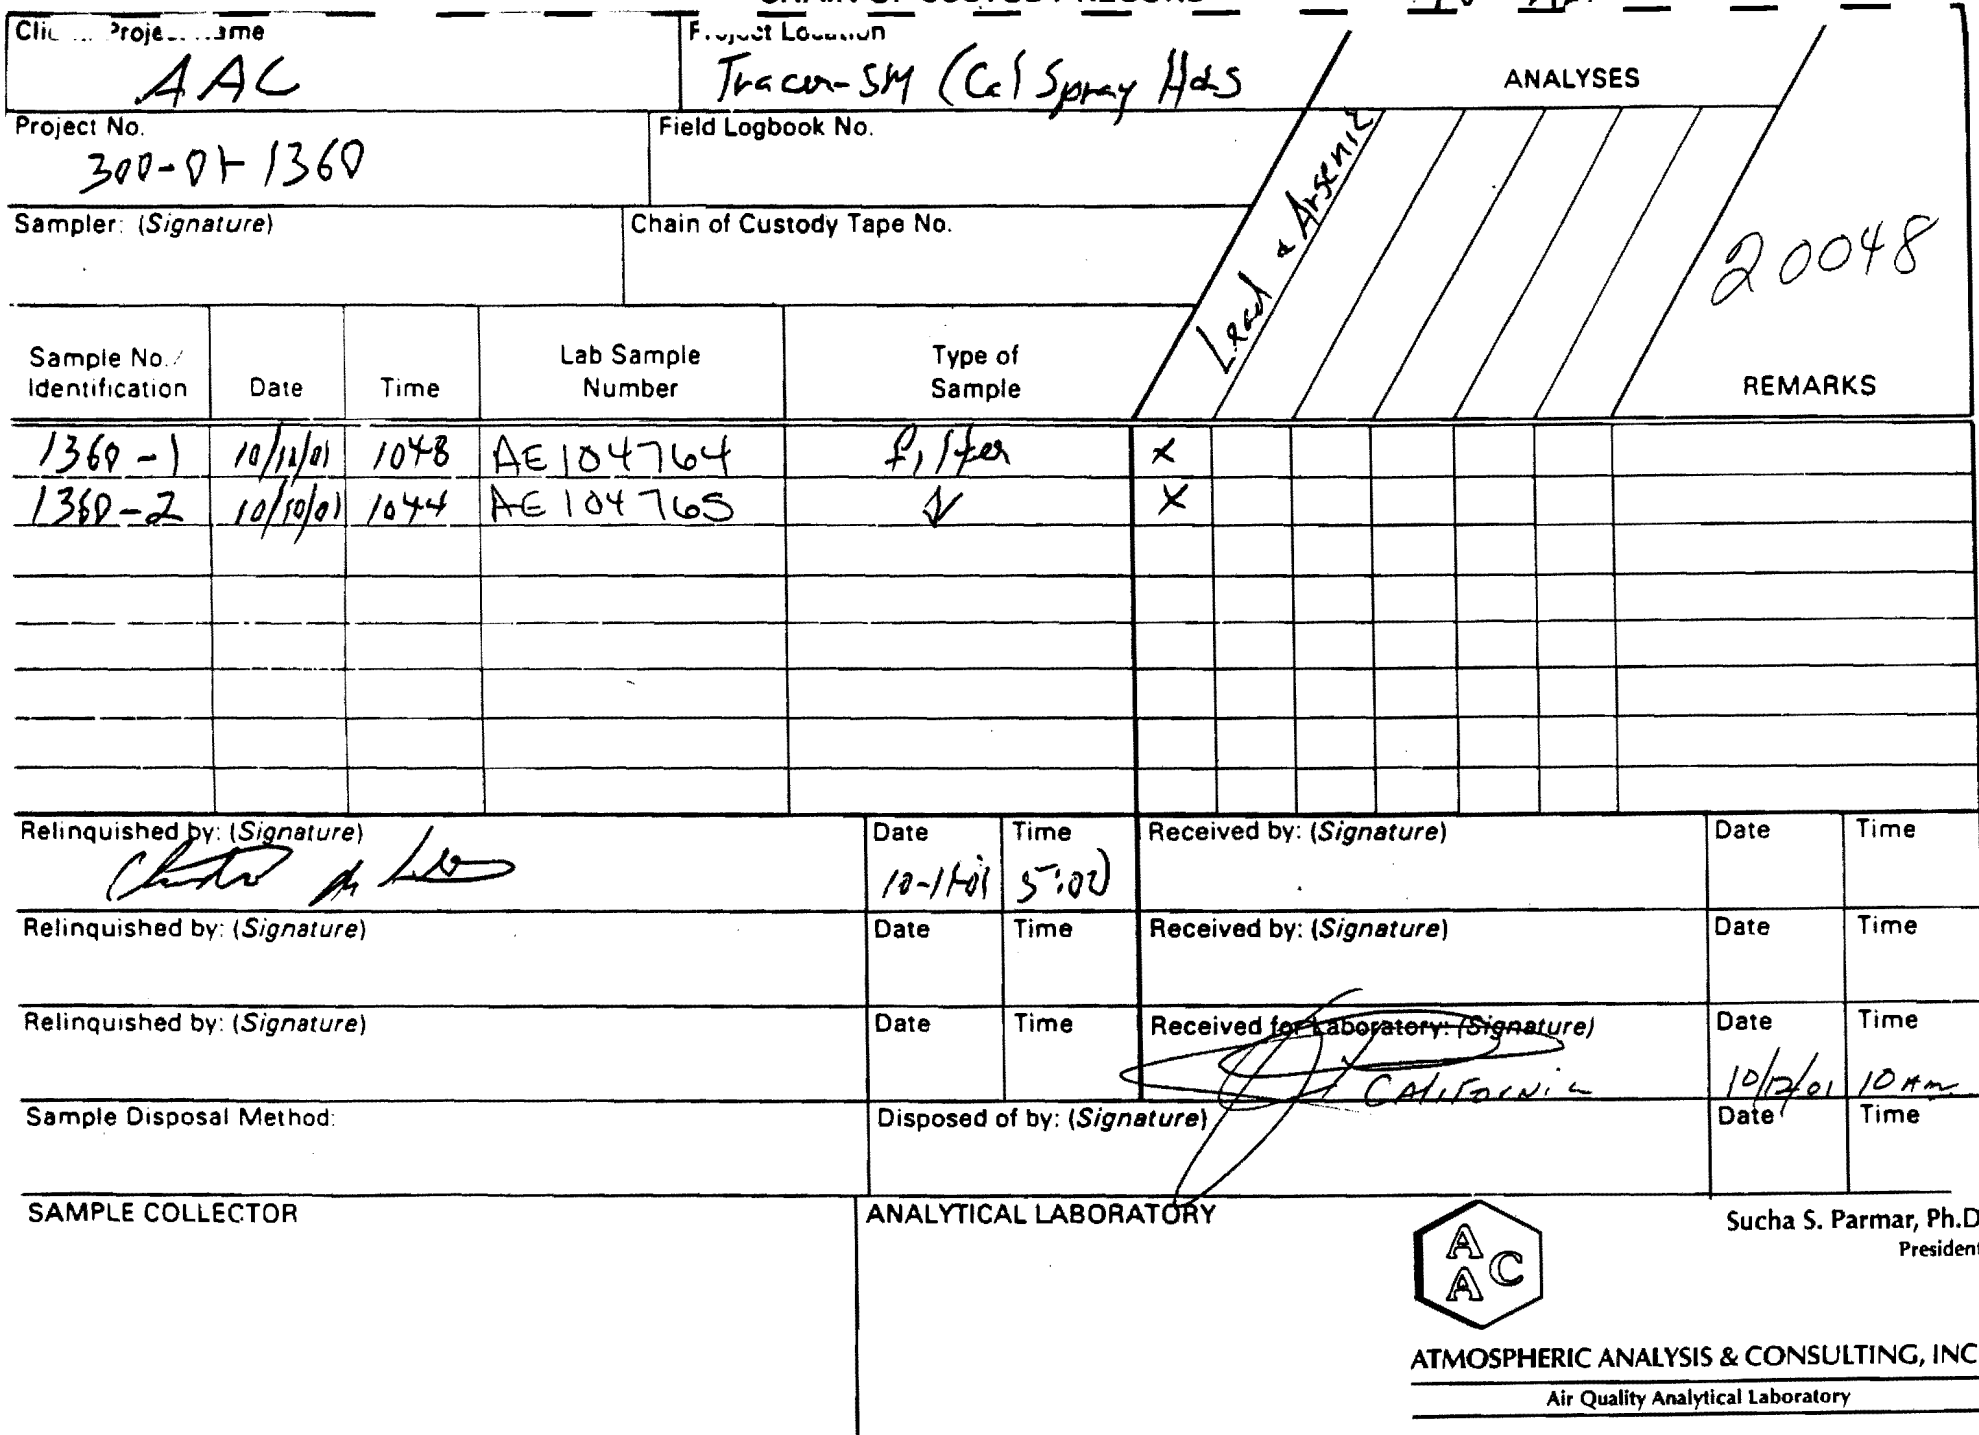 CHAIN OF CUSTODY RECORD
Project Location
AAC
Tracer-SM (Cal Spray Hds
ANALYSES
Project No.
300-01-1360
Field Logbook No.
Lead & Arsenic
Sampler: (Signature)
Chain of Custody Tape No.
20048
Sample No./ Identification
Date
Time
Lab Sample Number
Type of Sample
REMARKS
1360-1 10/11/01 1048 AE104764 filter x
1360-2 10/10/01 1044 AE104765 ↓ x
Relinquished by: (Signature)
Date
10-11-01
Time
5:00
Received by: (Signature)
Date
Time
Relinquished by: (Signature)
Date
Time
Received by: (Signature)
Date
Time
Relinquished by: (Signature)
Date
Time
Received for Laboratory: (Signature)
CALIFORNIA
Date
10/12/01
Time
10 AM
Sample Disposal Method:
Disposed of by: (Signature)
Date
Time
SAMPLE COLLECTOR
ANALYTICAL LABORATORY
AAC
Sucha S. Parmar, Ph.D
President
ATMOSPHERIC ANALYSIS & CONSULTING, INC
Air Quality Analytical Laboratory